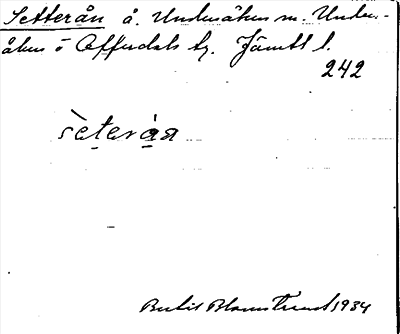 Setterån å. Undersåkers sn. Under-
åkers o Offerdals tg. Jämtl l.
242
sèteråa
Bertil Blomstrand 1934